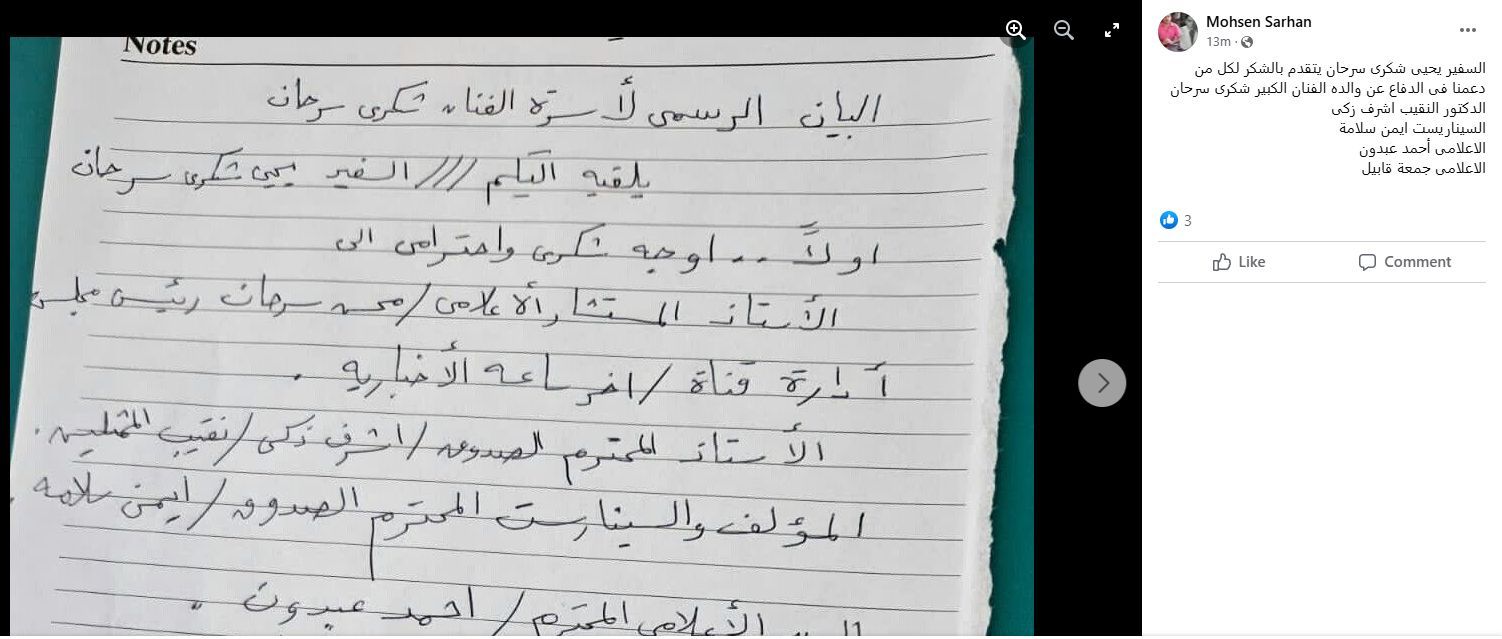 Notes
البيان الرسمى لأسرة الفنان شكرى سرحان
يلقيه اليكم /// السفير يحيى شكرى سرحان
اولاً .. اوجه شكرى واحترامى الى
الأستاذ المستشار الأعلامى / محسن سرحان رئيس مجلس
أدارة قناة / اخر ساعه الأخباريه .
الأستاذ المحترم الصدوق / اشرف زكى / نقيب الممثلين .
المؤلف والسينارست المحترم الصدوق / ايمن سلامه
الأعلامى المحترم / احمد عبدون .
Mohsen Sarhan
13m ·
السفير يحيى شكرى سرحان يتقدم بالشكر لكل من
دعمنا فى الدفاع عن والده الفنان الكبير شكرى سرحان
الدكتور النقيب اشرف زكى
السيناريست ايمن سلامة
الاعلامى أحمد عبدون
الاعلامى جمعة قابيل
3
Like
Comment